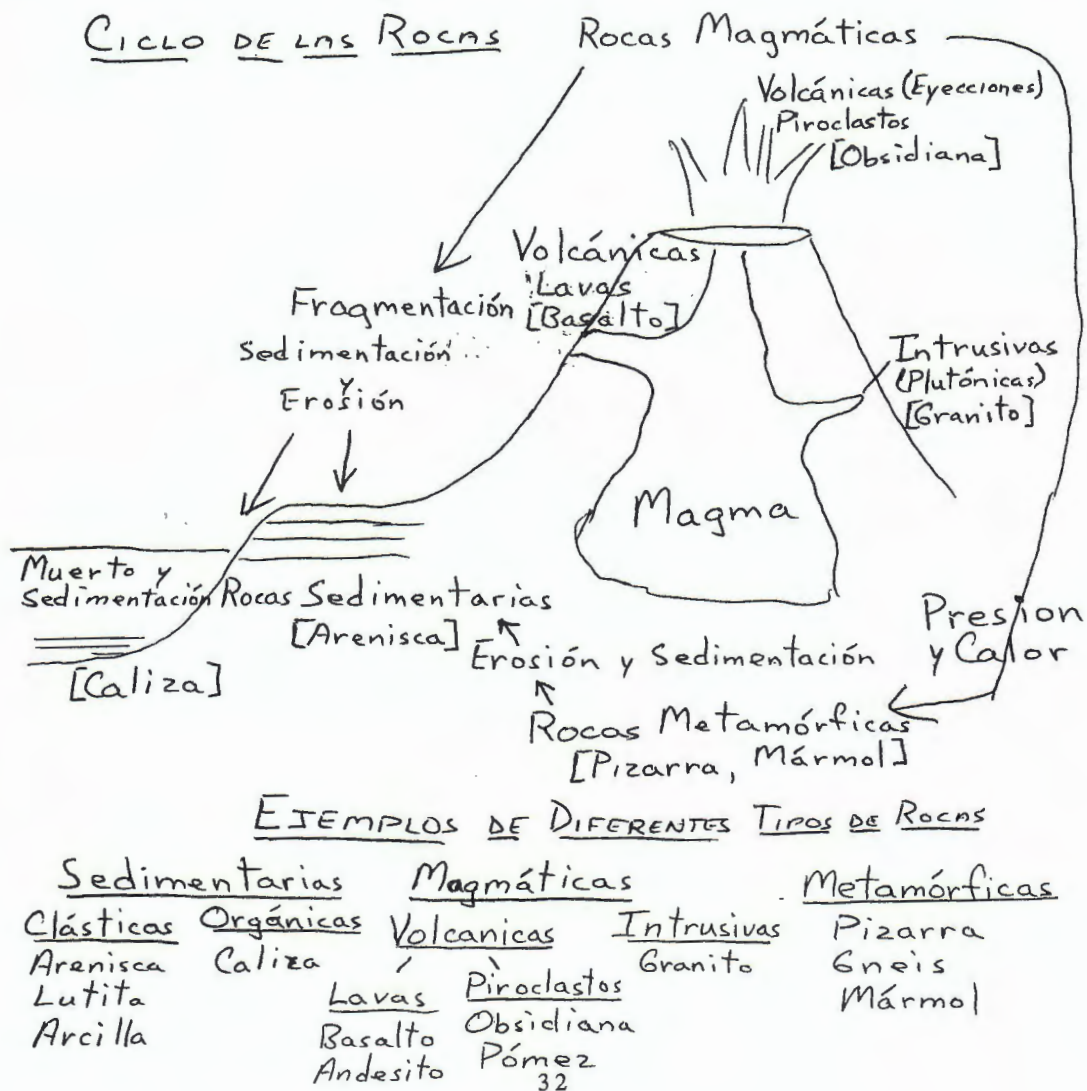 CICLO DE LAS ROCAS
Rocas Magmáticas
Volcánicas (Eyecciones)
Piroclastos
[Obsidiana]
Volcánicas
Lavas
[Basalto]
Fragmentación
Sedimentación
y
Erosión
Intrusivas
(Plutónicas)
[Granito]
Magma
Muerto y
Sedimentación
Rocas Sedimentarias
[Arenisca]
[Caliza]
Erosión y Sedimentación
Presion
y Calor
Rocas Metamórficas
[Pizarra, Mármol]
EJEMPLOS DE DIFERENTES TIPOS DE ROCAS
Sedimentarias
Clásticas
Arenisca
Lutita
Arcilla
Orgánicas
Caliza
Magmáticas
Volcanicas
Lavas
Basalto
Andesito
Piroclastos
Obsidiana
Pómez
Intrusivas
Granito
Metamórficas
Pizarra
Gneis
Mármol
32